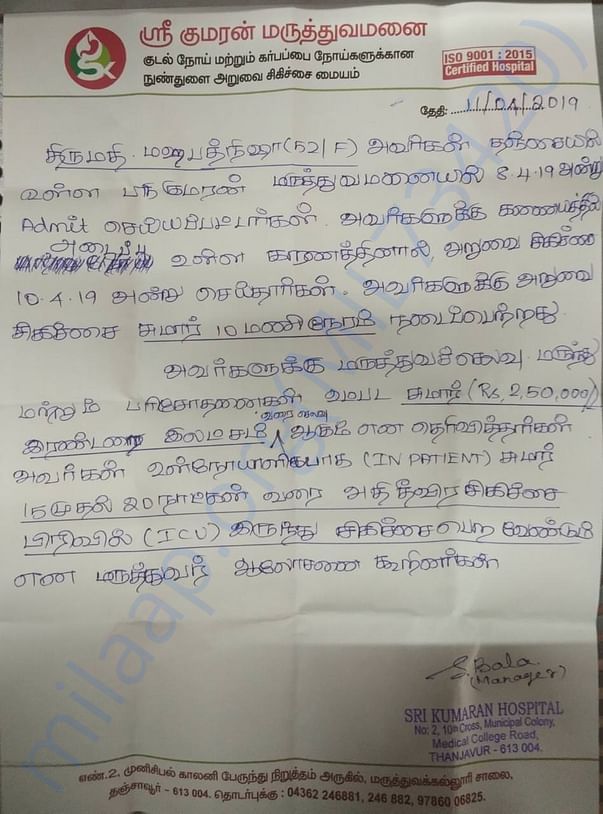 ஸ்ரீ குமரன் மருத்துவமனை
குடல் நோய் மற்றும் கர்பப்பை நோய்களுக்கான
நுண்துளை அறுவை சிகிச்சை மையம்
ISO 9001 : 2015
Certified Hospital
தேதி: 11/04/2019
திருமதி. (52/F) அவர்கள் தஞ்சையில்
உள்ள மருத்துவமனையில் 8.4.19 அன்று
Admit செய்யப்பட்டார்கள். அவர்களுக்கு கணையத்தில்
அடைப்பு உள்ள காரணத்தினால், அறுவை சிகிச்சை
10.4.19 அன்று செய்தார்கள். அவர்களுக்கு அறுவை
சிகிச்சை சுமார் 10 மணிநேரம் நடைபெற்றது.
அவர்களுக்கு மருத்துவச்செலவு மருந்து
மற்றும் பரிசோதனைகள் உட்பட சுமார் (Rs, 2,50,000/)
இரண்டரை இலட்சம் வரை செலவு ஆகும் என தெரிவித்தார்கள்.
அவர்கள் உள்நோயாளியாக (IN PATIENT) சுமார்
15 முதல் 20 நாட்கள் வரை அதி தீவிர சிகிச்சை
பிரிவில் (ICU) இருந்து சிகிச்சை பெற வேண்டும்
என மருத்துவர் ஆலோசனை கூறினார்கள்
S. Bala
(Manager)
SRI KUMARAN HOSPITAL
No: 2, 10th Cross, Municipal Colony,
Medical College Road,
THANJAVUR - 613 004.
எண்.2, முனிசிபல் காலனி பேருந்து நிறுத்தம் அருகில், மருத்துவக்கல்லூரி சாலை,
தஞ்சாவூர் - 613 004. தொடர்புக்கு : 04362 246881, 246 882, 97860 06825.
milaap.org/MILE73420)